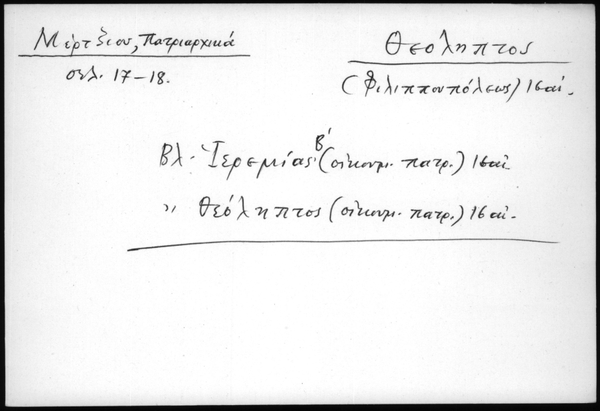 Μέρτζιου, Πατριαρχικά
σελ. 17-18.
Θεόληπτος
(Φιλιππουπόλεως) 16 αἰ.
Βλ. Ἰερεμίας Β' (οἰκουμ. πατρ.) 16 αἰ
" Θεόληπτος (οἰκουμ. πατρ.) 16 αἰ.